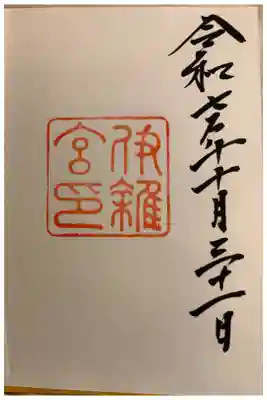 令和七年十月三十一日
伊雜宮印